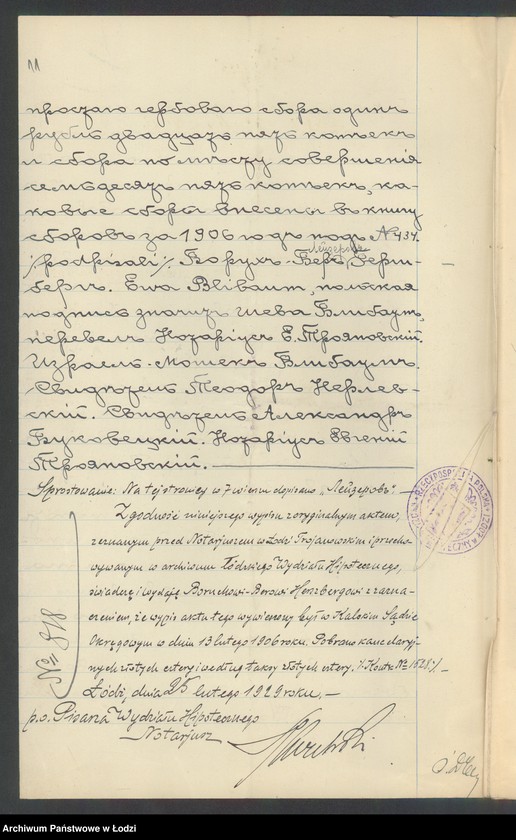 11
простаго гербоваго сбора одинъ
рубль двадцать пять копѣекъ
и сбора по мѣсту совершенія
семьдесятъ пять копѣекъ, ка-
ковые сборы внесены въ книгу
сборовъ за 1906 годъ подъ № 434.
Лейзеровъ
/:podpisali:/ Борухъ-Беръ Герш-
бергъ. Ewa Blibaum, польская
подпись значитъ Шева Блибаумъ,
перевелъ Нотаріусъ Е. Трояновскій.
Израель-Мошекъ Блибаумъ.
Свидѣтель Теодоръ Нерлев-
скій. Свидѣтель Александръ
Буковецкій. Нотаріусъ Евгеній
Трояновскій.
Sprostowanie: Na tej stronicy w 7 wierszu dopisano „Лейзеровъ".
Zgodność niniejszego wypisu z oryginalnym aktem,
zeznanym przed Notarjuszem w Łodzi Trojanowskim i przecho-
wywanym w archiwum Łódzkiego Wydziału Hipotecznego,
świadczę i wydaję Boruchowi-Berowi Herszbergowi z zazna-
czeniem, że wypis aktu tego wywieszony był w Kaliskim Sądzie
Okręgowym w dniu 13 lutego 1906 roku. Pobrano kancelaryj-
nych złotych cztery i według taksy złotych cztery. /: Konto № 1528 :/
№ 818
Łódź, dnia 25 lutego 1929 roku.
p.o. Pisarza Wydziału Hipotecznego
Notarjusz
Archiwum Państwowe w Łodzi